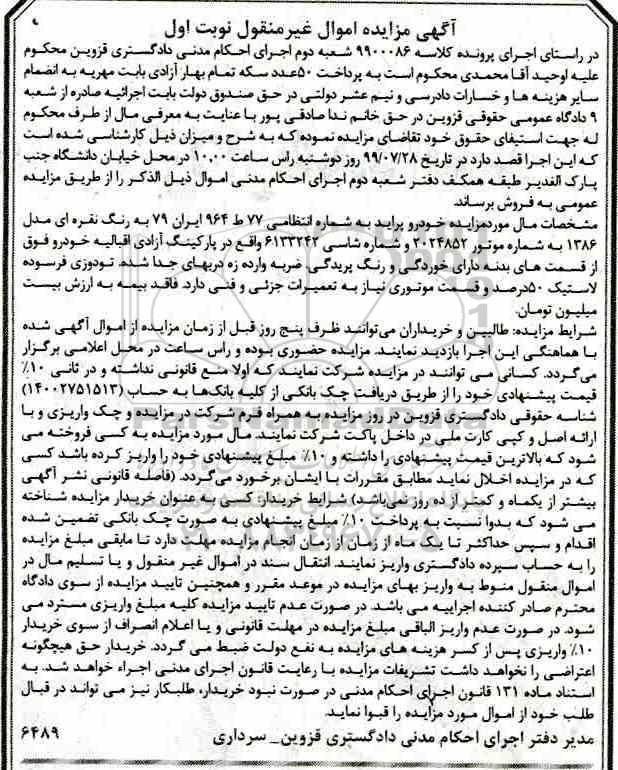 آگهی مزایده اموال غیرمنقول نوبت اول
در راستای اجرای پرونده کلاسه ۹۹۰۰۰۸۶ شعبه دوم اجرای احکام مدنی دادگستری قزوین محکوم
علیه اوحید آقا محمدی محکوم است به پرداخت ۵۰عدد سکه تمام بهار آزادی بابت مهریه به انضمام
سایر هزینه ها و خسارات دادرسی و نیم عشر دولتی در حق صندوق دولت بابت اجرائیه صادره از شعبه
۹ دادگاه عمومی حقوقی قزوین در حق خانم ندا صادقی پور با عنایت به معرفی مال از طرف محکوم
له جهت استیفای حقوق خود تقاضای مزایده نموده که به شرح و میزان ذیل کارشناسی شده است
که این اجرا قصد دارد در تاریخ ۹۹/۰۷/۲۸ روز دوشنبه راس ساعت ۱۰,۰۰ در محل خیابان دانشگاه جنب
پارک الغدیر طبقه همکف دفتر شعبه دوم اجرای احکام مدنی اموال ذیل الذکر را از طریق مزایده
عمومی به فروش برساند.
مشخصات مال موردمزایده خودرو پراید به شماره انتظامی ۷۷ ط ۹۶۴ ایران ۷۹ به رنگ نقره ای مدل
۱۳۸۶ به شماره موتور ۲۰۲۴۸۵۲ و شماره شاسی ۶۱۳۳۲۴۲ واقع در پارکینگ آزادی اقبالیه خودرو فوق
از قسمت های بدنه دارای خوردگی و رنگ پریدگی ضربه وارده زه دربهای جدا شده. تودوزی فرسوده
لاستیک ۵۰درصد و قسمت موتوری نیاز به تعمیرات جزئی و فنی دارد. فاقد بیمه به ارزش بیست
میلیون تومان.
شرایط مزایده: طالبین و خریداران می‌توانند ظرف پنج روز قبل از زمان مزایده از اموال آگهی شده
با هماهنگی این اجرا بازدید نمایند. مزایده حضوری بوده و راس ساعت در محل اعلامی برگزار
می‌گردد. کسانی می توانند در مزایده شرکت نمایند که اولا منع قانونی نداشته و در ثانی ۱۰٪
قیمت پیشنهادی خود را از طریق دریافت چک بانکی از کلیه بانک‌ها به حساب (۱۴۰۰۲۷۵۱۵۱۳)
شناسه حقوقی دادگستری قزوین در روز مزایده به همراه فرم شرکت در مزایده و چک واریزی و با
ارائه اصل و کپی کارت ملی در داخل پاکت شرکت نمایند. مال مورد مزایده به کسی فروخته می
شود که بالاترین قیمت پیشنهادی را داشته و ۱۰٪ مبلغ پیشنهادی خود را واریز کرده باشد کسی
که در مزایده اخلال نماید مطابق مقررات با ایشان برخورد می‌گردد. (فاصله قانونی نشر آگهی
بیشتر از یکماه و کمتر از ده روز نمی‌باشد) شرایط خریدار: کسی به عنوان خریدار مزایده شناخته
می شود که بدوا نسبت به پرداخت ۱۰٪ مبلغ پیشنهادی به صورت چک بانکی تضمین شده
اقدام و سپس حداکثر تا یک ماه از زمان از زمان انجام مزایده مهلت دارد تا مابقی مبلغ مزایده
را به حساب سپرده دادگستری واریز نمایند. انتقال سند در اموال غیر منقول و یا تسلیم مال در
اموال منقول منوط به واریز بهای مزایده در موعد مقرر و همچنین تایید مزایده از سوی دادگاه
محترم صادر کننده اجراییه می باشد. در صورت عدم تایید مزایده کلیه مبلغ واریزی مسترد می
شود. در صورت عدم واریز الباقی مبلغ مزایده در مهلت قانونی و یا اعلام انصراف از سوی خریدار
۱۰٪ واریزی پس از کسر هزینه های مزایده به نفع دولت ضبط می گردد. خریدار حق هیچگونه
اعتراضی را نخواهد داشت تشریفات مزایده با رعایت قانون اجرای مدنی اجراء خواهد شد. به
استناد ماده ۱۳۱ قانون اجرای احکام مدنی در صورت نبود خریدار، طلبکار نیز می تواند در قبال
طلب خود از اموال مورد مزایده را قبوا نماید.
مدیر دفتر اجرای احکام مدنی دادگستری قزوین_ سرداری ۶۴۸۹